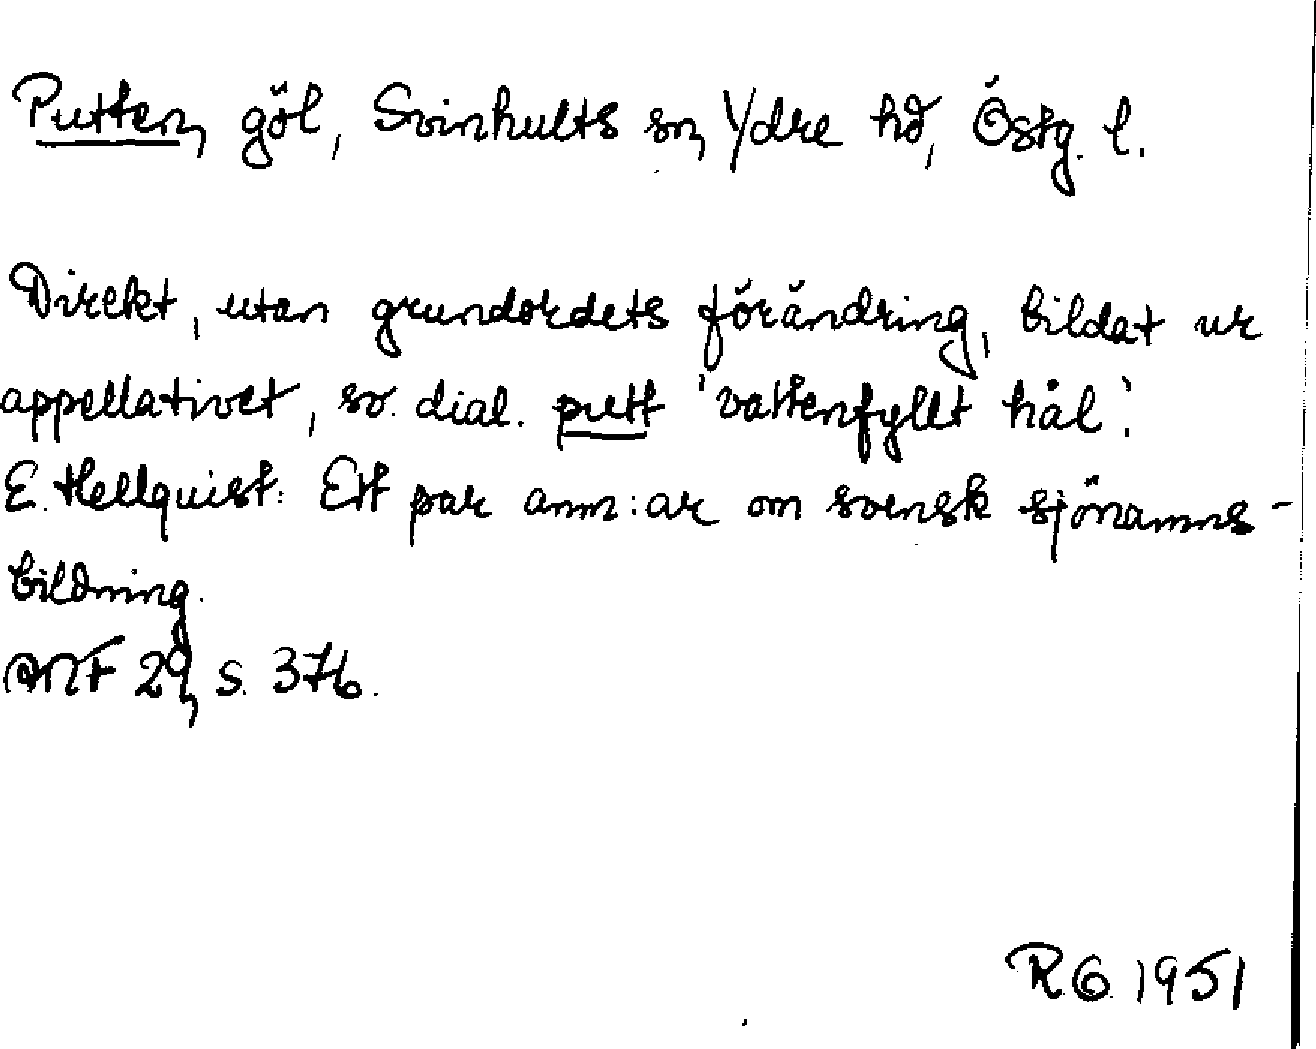 Putten, göl, Svinhults sn, Ydre hd, Östg. l.
Direkt, utan grundordets förändring, bildat ur
appellativet, sv. dial. putt 'vattenfyllt hål'.
E. Hellquist: Ett par anm:ar om svensk sjönamns-
bildning.
ANF 29, s. 376.
R.G. 1951